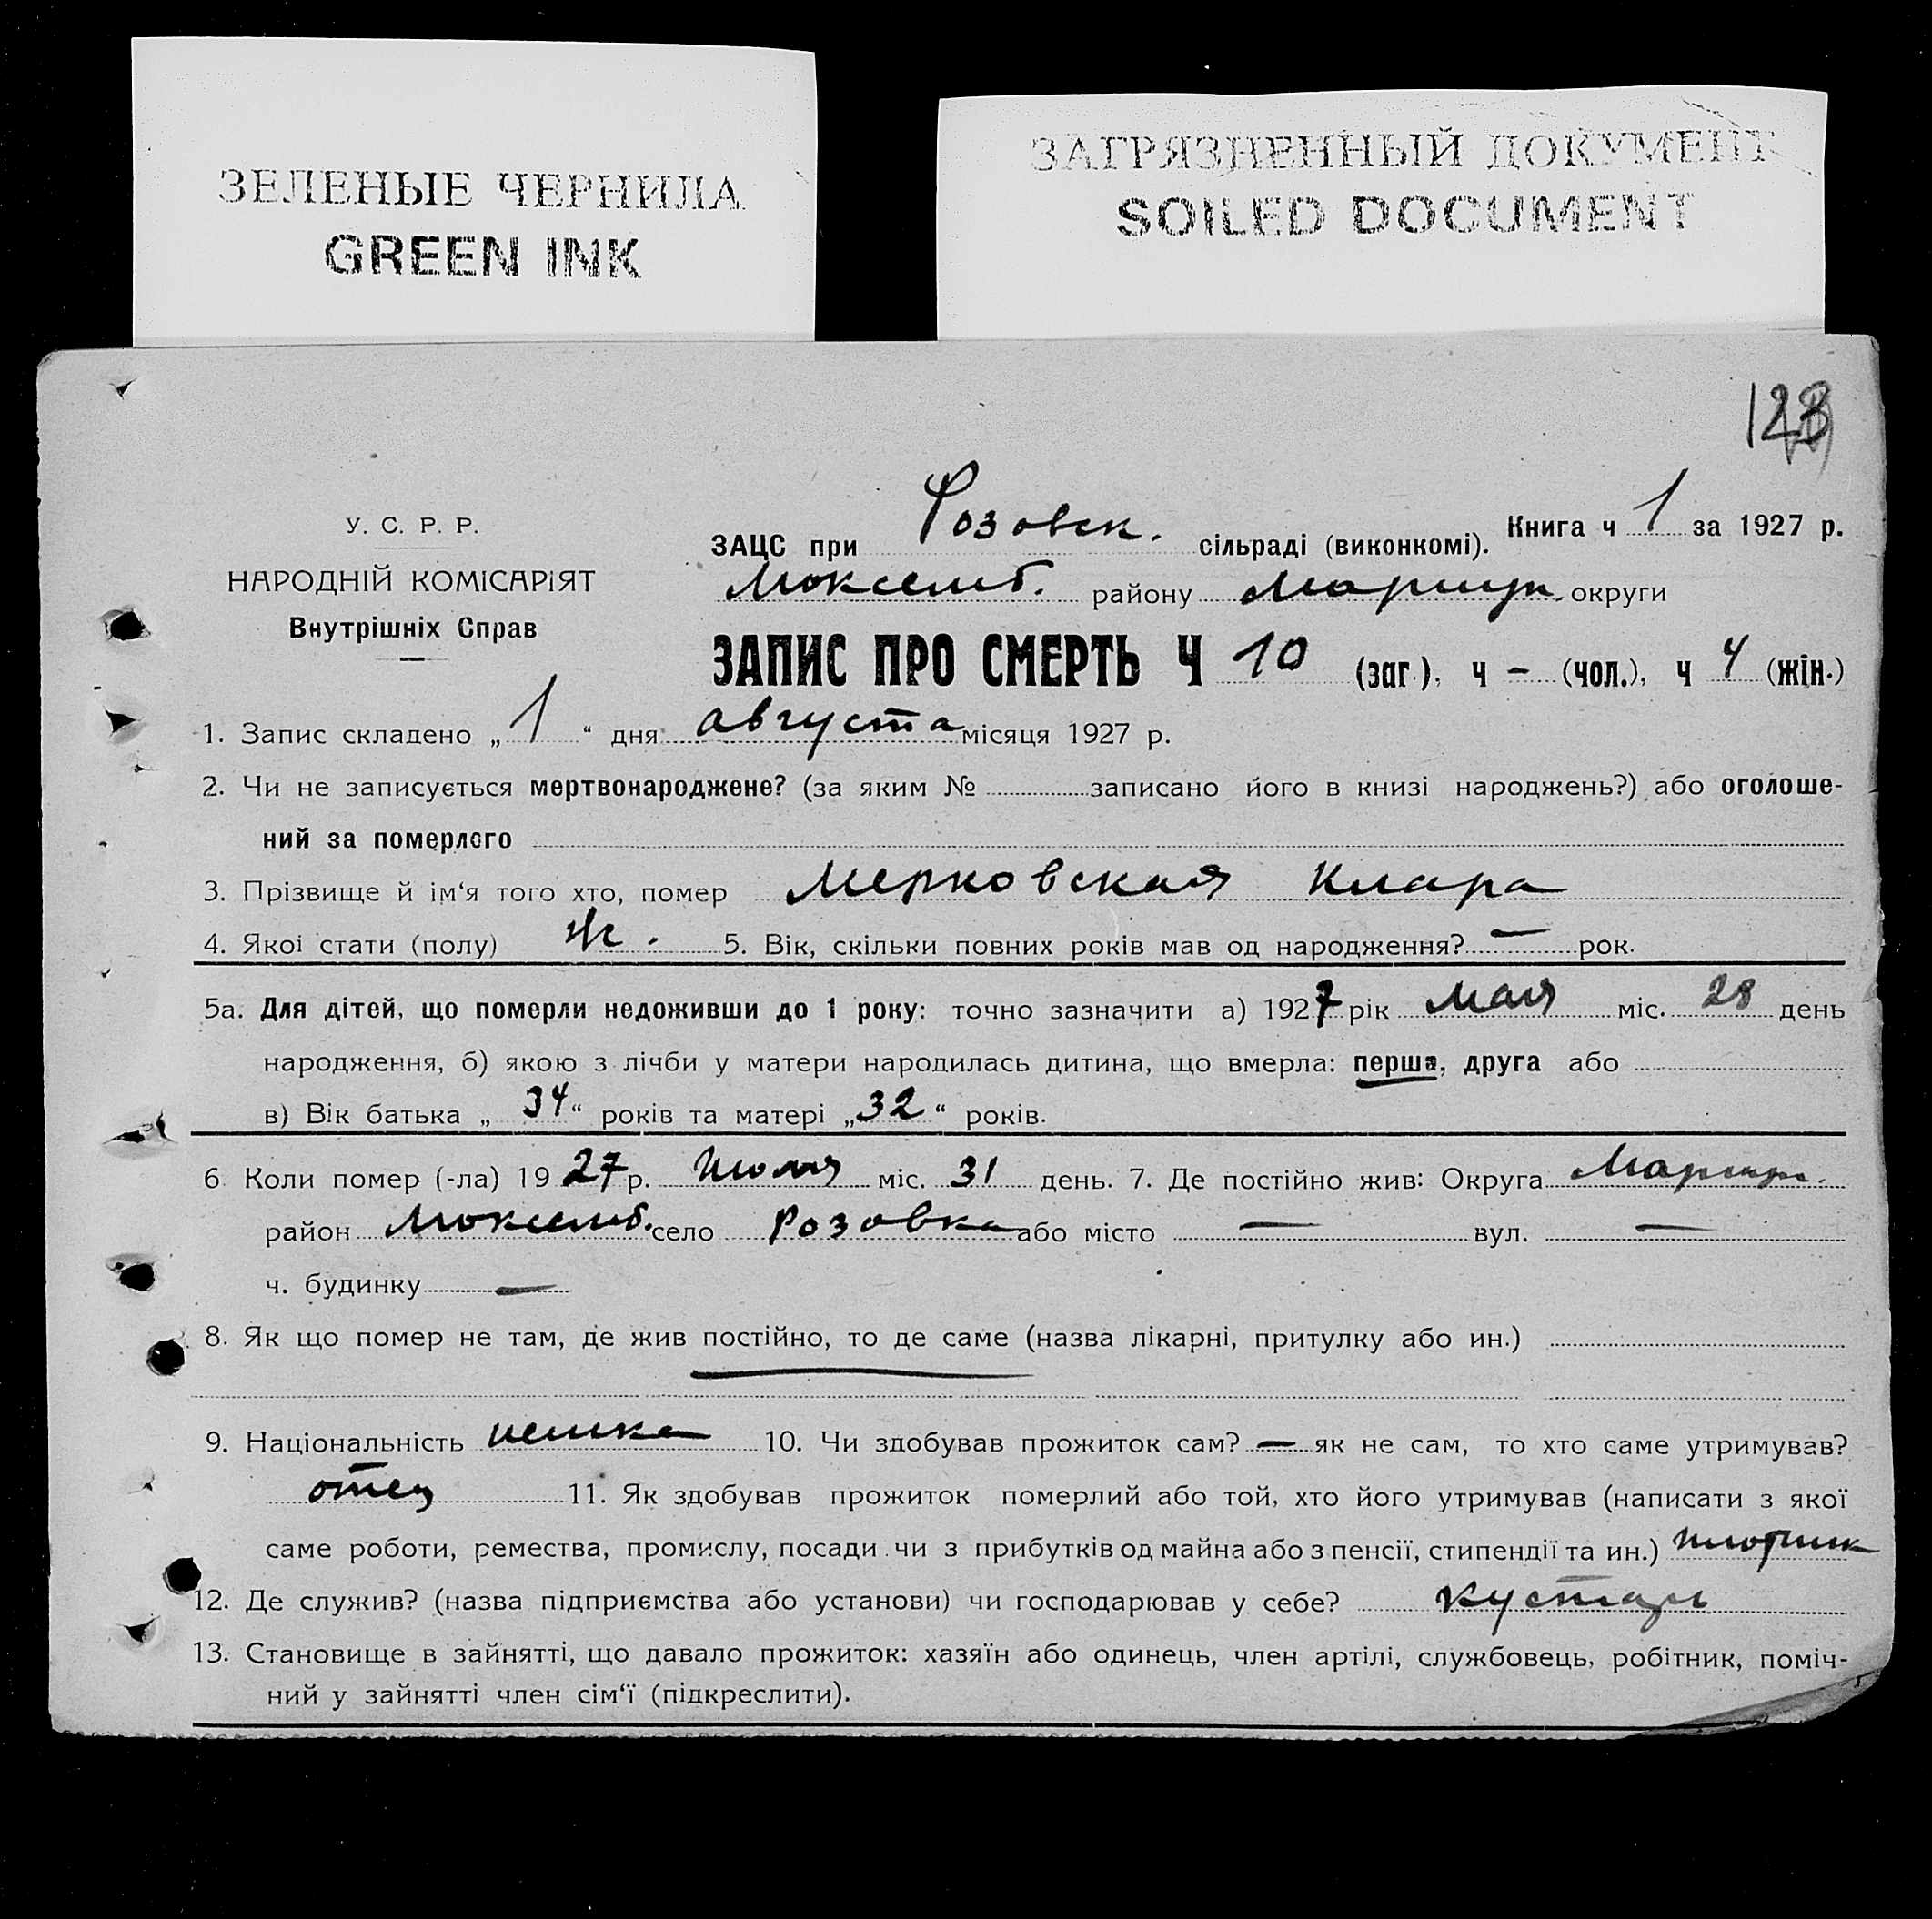 ЗЕЛЕНЫЕ ЧЕРНИЛА
GREEN INK
ЗАГРЯЗНЕННЫЙ ДОКУМЕНТ
SOILED DOCUMENT
123
У. С. Р. Р.
НАРОДНІЙ КОМІСАРІЯТ
Внутрішніх Справ
ЗАЦС при Розовск. сільраді (виконкомі). Книга ч 1 за 1927 р.
району Мариуп. округи
ЗАПИС ПРО СМЕРТЬ Ч 10 (заг.), ч – (чол.), ч 4 (жін.)
1. Запис складено „ 1 “ дня августа місяця 1927 р.
2. Чи не записується мертвонароджене? (за яким № записано його в книзі народжень?) або оголоше-
ний за померлого
3. Прізвище й ім‘я того хто, помер Мерковская Клара
4. Якої стати (полу) ж. 5. Вік, скільки повних років мав од народження? — рок.
5а. Для дітей, що померли недоживши до 1 року: точно зазначити а) 1927 рік мая міс. 28 день
народження, б) якою з лічби у матери народилась дитина, що вмерла: перша, друга або
в) Вік батька „ 34 “ років та матері „ 32 “ років.
6 Коли помер (-ла) 1927 р. июля міс. 31 день. 7. Де постійно жив: Округа Мариуп.
район село Розовка або місто — вул. —
ч. будинку —
8. Як що помер не там, де жив постійно, то де саме (назва лікарні, притулку або ин.)
9. Національність немка 10. Чи здобував прожиток сам? — як не сам, то хто саме утримував?
отец 11. Як здобував прожиток померлий або той, хто його утримував (написати з якої
саме роботи, ремества, промислу, посади чи з прибутків од майна або з пенсії, стипендії та ин.) плотник
12. Де служив? (назва підприємства або установи) чи господарював у себе? кустарь
13. Становище в зайнятті, що давало прожиток: хазяїн або одинець, член артілі, службовець, робітник, поміч-
ний у зайнятті член сім‘ї (підкреслити).